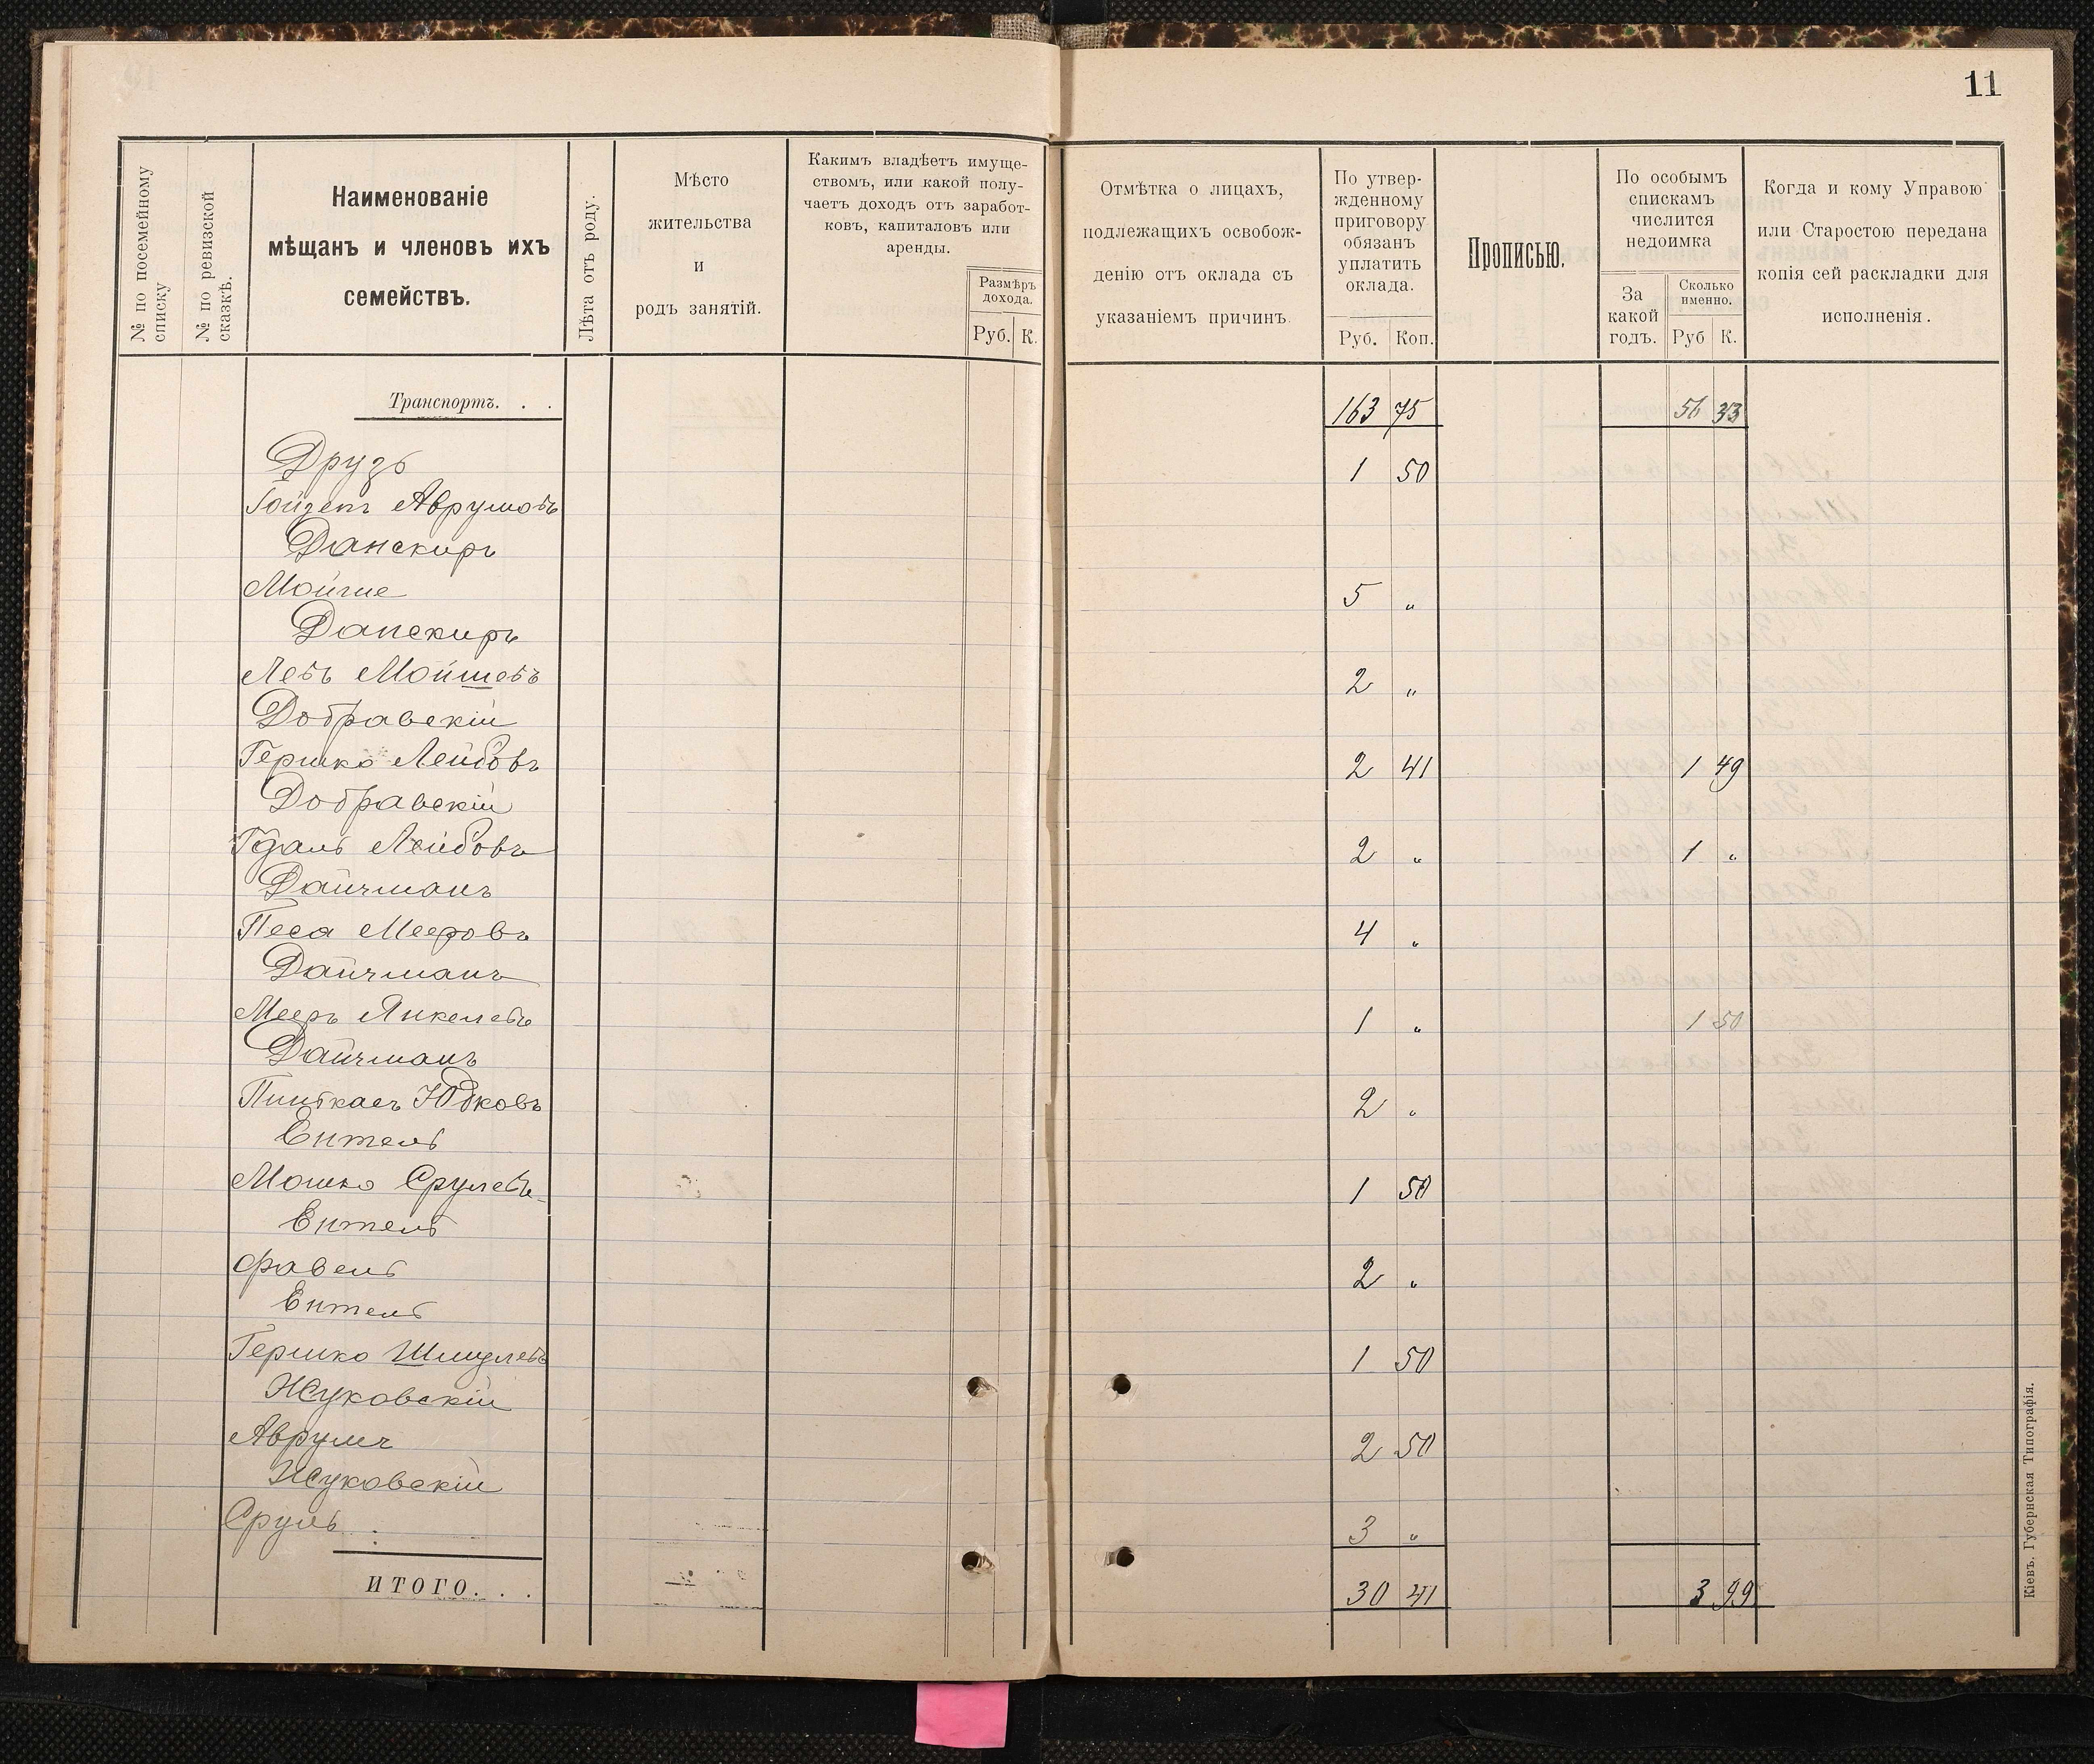 11
№ по посемейному списку
№ по ревизской сказкѣ.
Наименованіе
мѣщанъ и членовъ ихъ
семействъ.
Лѣта отъ роду.
Мѣсто
жительства
и
родъ занятій.
Какимъ владѣетъ имуще-
ствомъ, или какой полу-
чаетъ доходъ отъ заработ-
ковъ, капиталовъ или
аренды.
Размѣръ
дохода.
Руб. К.
Отмѣтка о лицахъ,
подлежащихъ освобож-
денію отъ оклада съ
указаніемъ причинъ.
По утвер-
жденному
приговору
обязанъ
уплатить
оклада.
Руб. Коп.
Прописью.
По особымъ
спискамъ
числится
недоимка
За
какой
годъ.
Сколько
именно.
Руб К.
Когда и кому Управою
или Старостою передана
копія сей раскладки для
исполненія.
Транспортъ. . . 163 75 56 33
Друзь 1 50
Аврумовъ
Данскиръ
Мойше 5 „
Данскиръ
Левъ Мойшевъ 2 „
Добравскій
Гершко Лейбовъ 2 41 1 49
Добравскій
Гдаль Лейбовъ 2 „ 1 „
Дайчманъ
Песа Мееровъ 4 „
Дайчманъ
Мееръ Янкелевъ 1 „ 1 50
Дайчманъ
Юдковъ 2 „
Ентель
Мошко Срулевъ 1 50
Ентель
Фавель 2 „
Ентель
Гершко Шмулевъ 1 50
Жуковскій
Аврумъ 2 50
Жуковскій
Сруль 3 „
ИТОГО. . . 30 41 3 99
Кіевъ. Губернская Типографія.